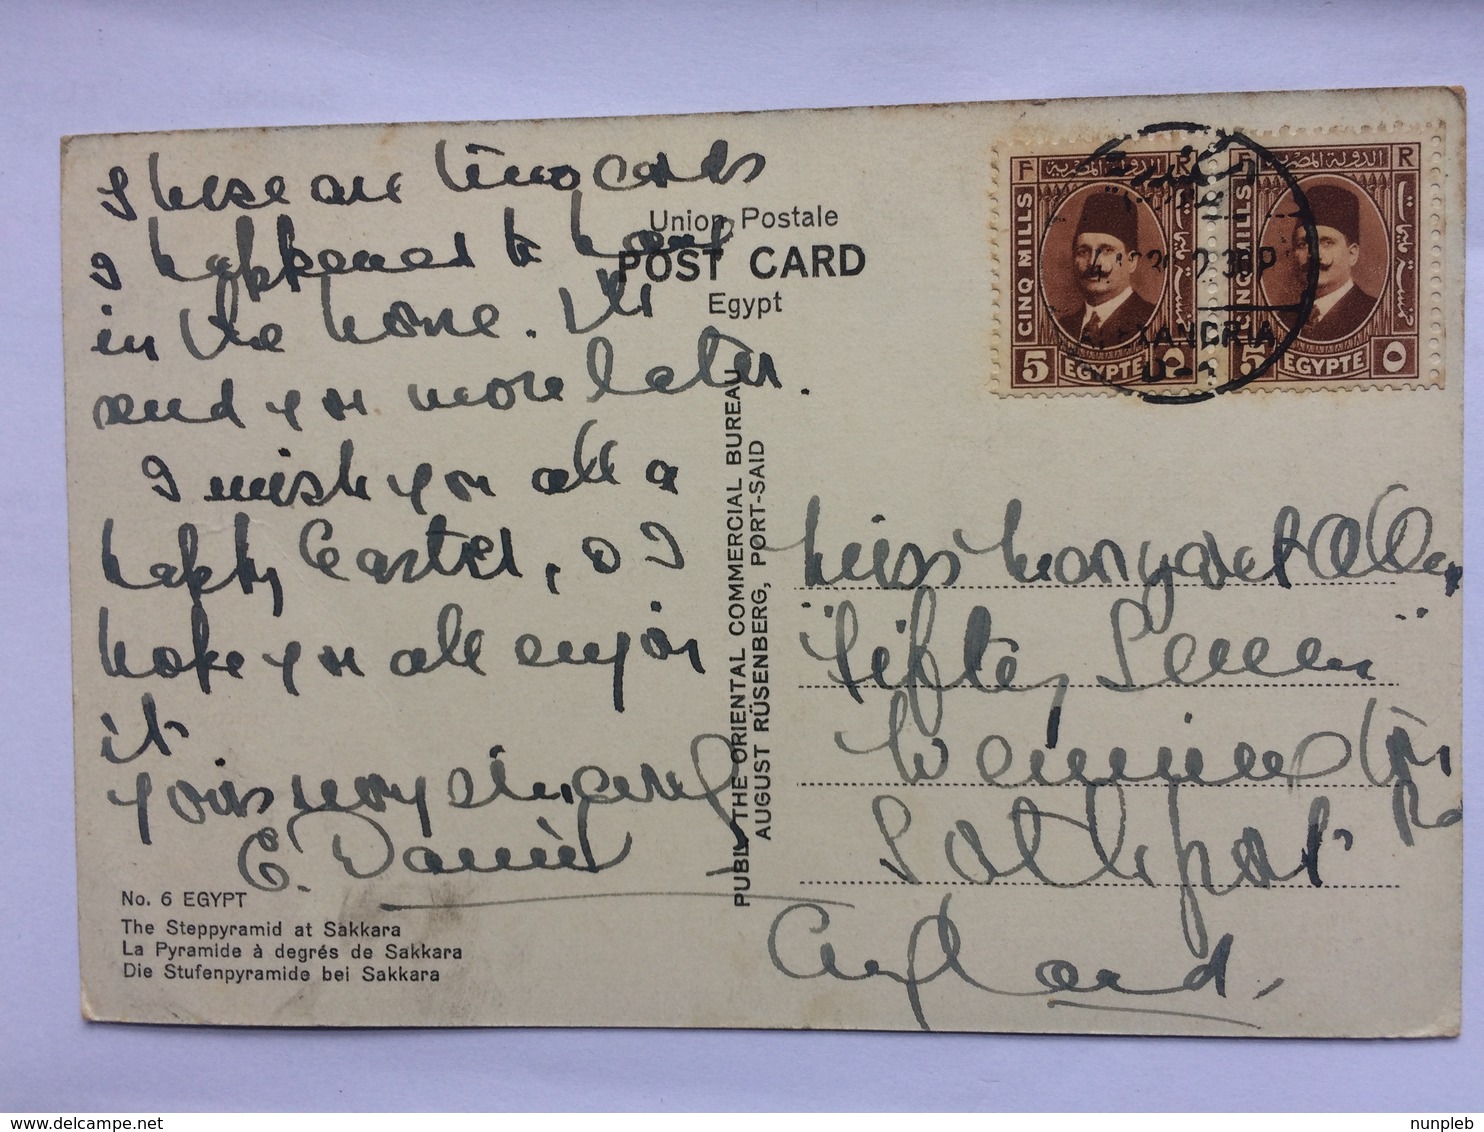 These are two cards
I happened to have
in the house. I'll
send you more later.
I wish you all a
happy Easter, & I
hope you all enjoy
it.
Yours very sincerely
E. Daniel
No. 6 EGYPT
The Steppyramid at Sakkara
La Pyramide à degrés de Sakkara
Die Stufenpyramide bei Sakkara
Union Postale
POST CARD
Egypt
PUBL. THE ORIENTAL COMMERCIAL BUREAU
AUGUST RÜSENBERG, PORT-SAID
F R
الدولة المصرية
CINQ MILLS
خمسة مليمات
5 EGYPTE ٥
F R
الدولة المصرية
CINQ MILLS
خمسة مليمات
5 EGYPTE ٥
ALEXANDRIA
Miss Margaret Allen
"Fifty Seven"
Rd
Southport
England.
nunpleb